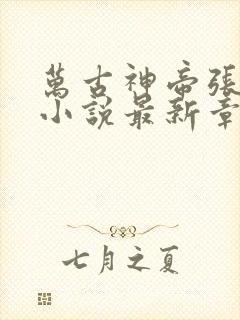 萬古神帝張
小說最新章
七月之夏